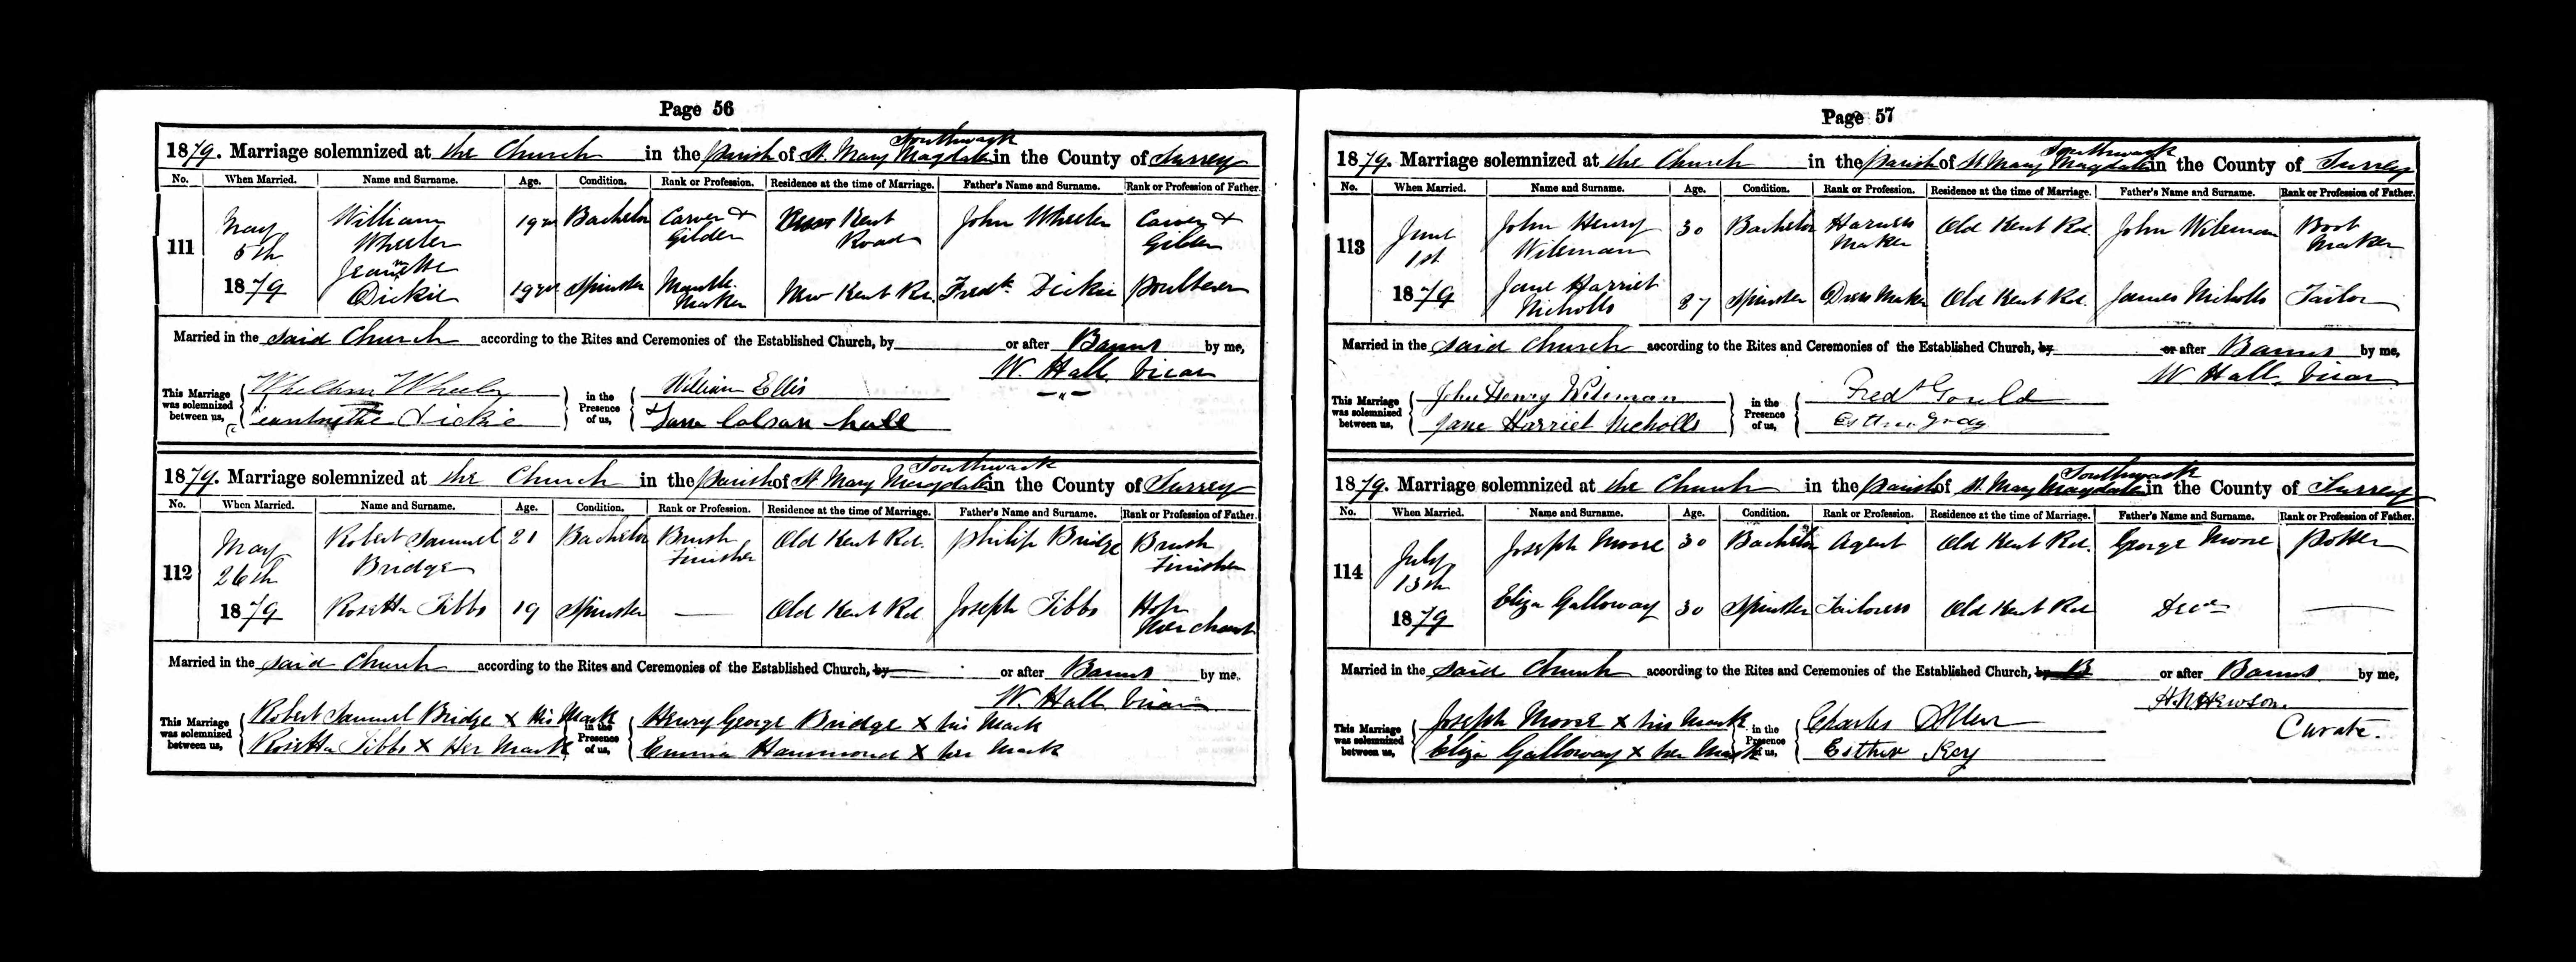 Page 56
1879. Marriage solemnized at the Church in the parish of St. Mary Magdalen Southwark in the County of Surrey
No. When Married. Name and Surname. Age. Condition. Rank or Profession. Residence at the time of Marriage. Father's Name and Surname. Rank or Profession of Father.
111 May 5th 1879 William Wheeler 19 Bachelor Carver & Gilder New Kent Road John Wheeler Carver & Gilder
Dickie 19 Spinster Mantle Maker New Kent Rd. Fredk Dickie Poulterer
Married in the said Church according to the Rites and Ceremonies of the Established Church, by or after Banns by me,
W. Hall. Vicar
This Marriage was solemnized between us, William Wheeler Dickie in the Presence of us, William Ellis Hall
1879. Marriage solemnized at the Church in the parish of St Mary Magdalen Southwark in the County of Surrey
No. When Married. Name and Surname. Age. Condition. Rank or Profession. Residence at the time of Marriage. Father's Name and Surname. Rank or Profession of Father.
112 May 26th 1879 Robert Samuel Bridge 21 Bachelor Brush Finisher Old Kent Rd. Philip Bridge Brush Finisher
Rosetta Tibbs 19 Spinster — Old Kent Rd Joseph Tibbs Hop Merchant
Married in the said Church according to the Rites and Ceremonies of the Established Church, by or after Banns by me,
W. Hall Vicar
This Marriage was solemnized between us, Robert Samuel Bridge X His Mark Rosetta Tibbs X Her Mark in the Presence of us, Henry George Bridge X his Mark Emma Hammond X her Mark
Page 57
1879. Marriage solemnized at the Church in the parish of St Mary Magdalen Southwark in the County of Surrey
No. When Married. Name and Surname. Age. Condition. Rank or Profession. Residence at the time of Marriage. Father's Name and Surname. Rank or Profession of Father.
113 June 1st 1879 John Henry Wileman 30 Bachelor Harness Maker Old Kent Rd. John Wileman Boot Maker
Jane Harriet Nicholls 27 Spinster Dress Maker Old Kent Rd. James Nicholls Tailor
Married in the said Church according to the Rites and Ceremonies of the Established Church, by or after Banns by me,
W Hall. Vicar
This Marriage was solemnized between us, John Henry Wileman Jane Harriet Nicholls in the Presence of us, Fredk Gould Esther Gray
1879. Marriage solemnized at the Church in the parish of St. Mary Magdalen Southwark in the County of Surrey
No. When Married. Name and Surname. Age. Condition. Rank or Profession. Residence at the time of Marriage. Father's Name and Surname. Rank or Profession of Father.
114 July 13th 1879 Joseph Moore 30 Bachelor Agent Old Kent Rd. George Moore Potter
Eliza Galloway 30 Spinster Tailoress Old Kent Rd Decd —
Married in the said Church according to the Rites and Ceremonies of the Established Church, by or after Banns by me,
Hewson. Curate.
This Marriage was solemnized between us, Joseph Moore X his Mark Eliza Galloway X her Mark in the Presence of us, Charles Allen Esther Key